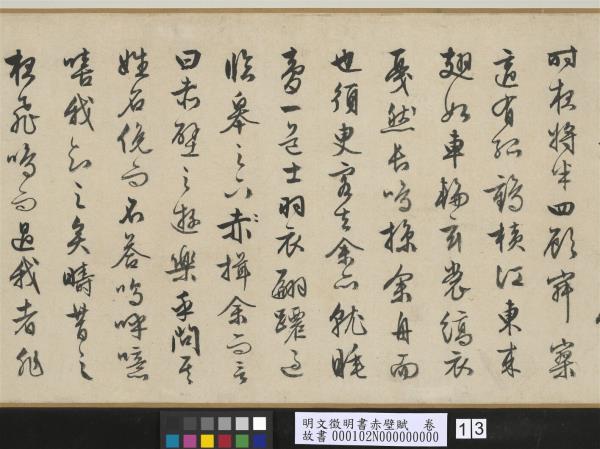 時夜將半四顧寂寥
適有孤鶴橫江東來
翅如車輪玄裳縞衣
戛然長鳴掠余舟而
也須臾客去余亦就睡
夢一道士羽衣翩躚過
臨皋之下赤揖余而言
曰赤壁之遊樂乎問其
姓名俛而不答嗚呼噫
嘻我知之矣疇昔之
夜飛鳴而過我者非
明文徵明書赤壁賦 卷
故書000102N000000000
13